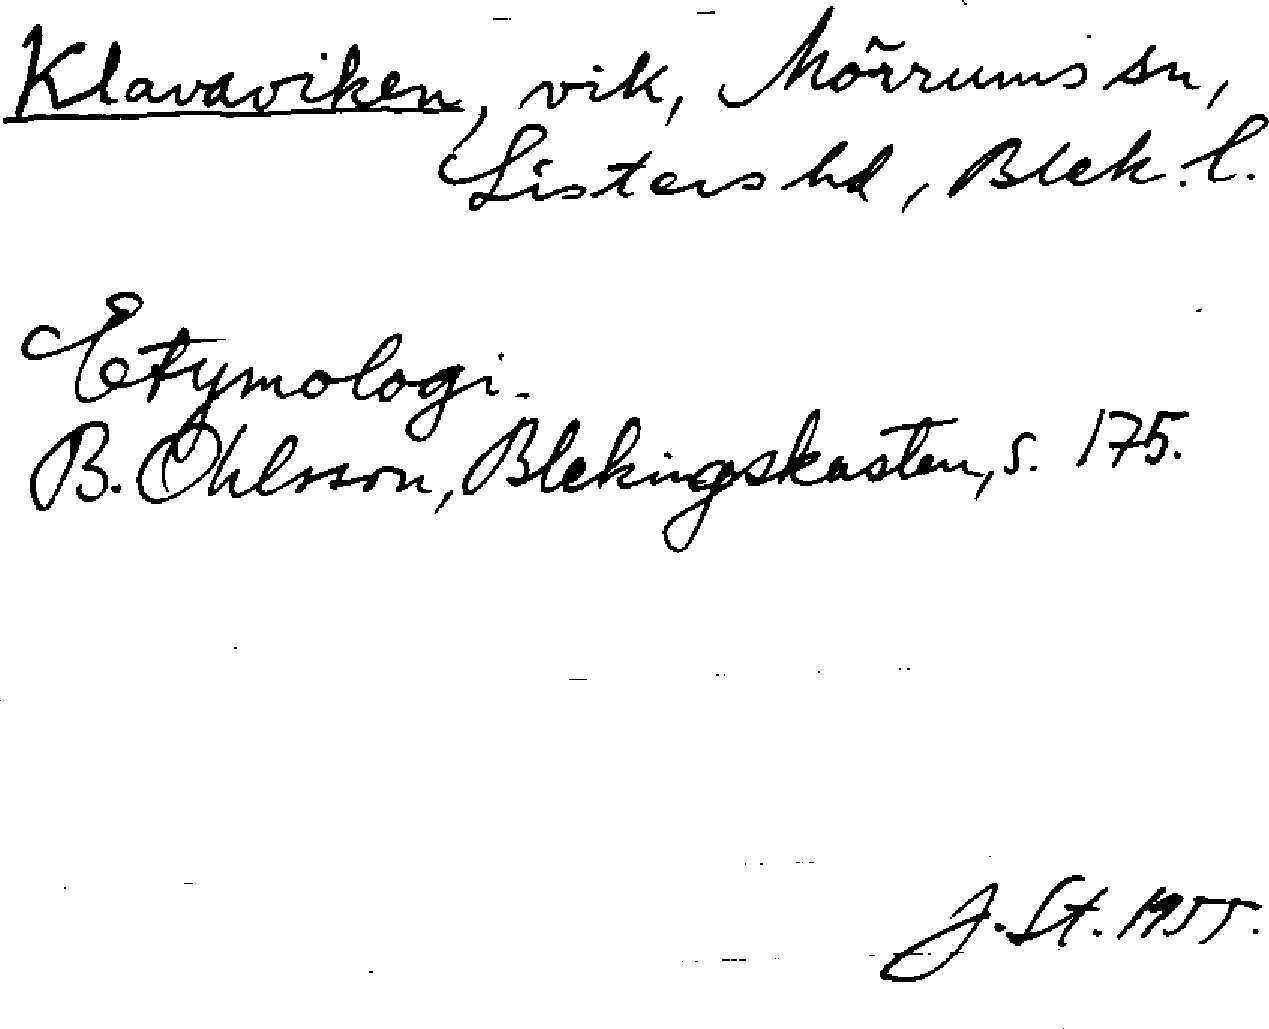 Klavaviken, vik, Mörrums sn,
Listers hd, Blek. l.
Etymologi.
B. Ohlsson, Blekingskusten, s. 175.
J. St. 1955.